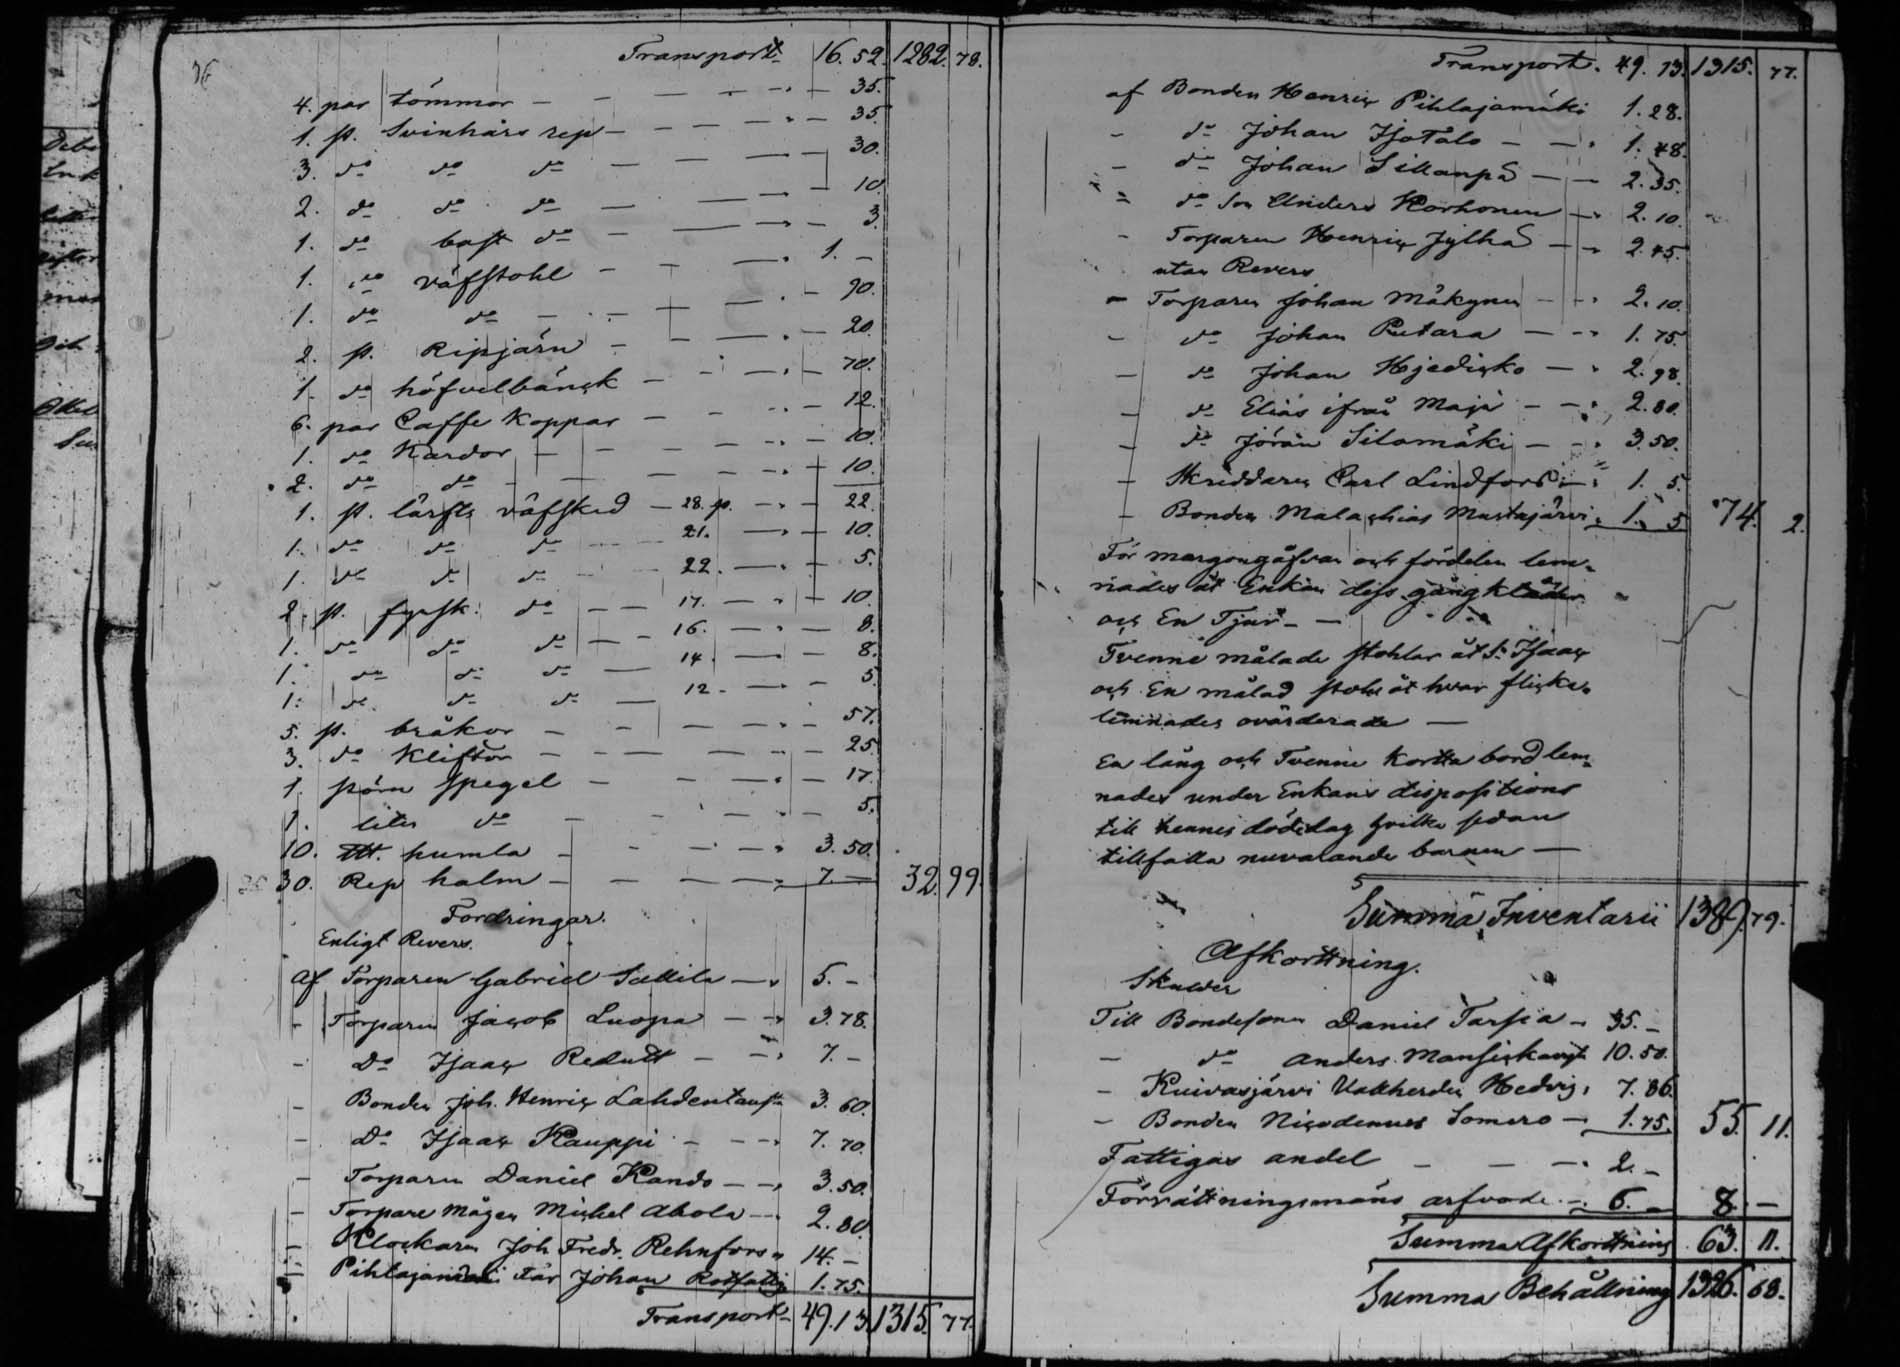 Transport 16. 52. 1282. 78.
4. par tömmar — 35.
1. st. Svinhårs rep — 35.
3. do do do — 30.
2. do do do — 10.
1. do bast do — 3.
1. do väfstohl — 1. —
1. do do — 90.
2. st. Ripjärn — 20.
1. do höfvelbänck — 70.
6. par Caffe Koppar — 12.
1. do Kardor — 10.
2. do do — 10.
1. st. lärfts väfsked — 28. p. — 22.
1. do do do 21. — 10.
1. do do do 22. — 5.
2. st. fyrsk. do — 17. — 10.
1. do do do — 16. — 8.
1. do do do — 14. — 8.
1. do do do — 12. — 5.
5. st. bråkor — 57.
3. do Kliftor — 25.
1. störn Spegel — 17.
1. liten do — 5.
10. humla — 3. 50.
30. Rep halm — 7. — 32. 99.
Fordringar.
Enligt Revers.
Af Torparen Gabriel — 5. —
- Torparen Jacob Luopa — 3. 78.
- Do Isaac — 7. —
- Bonden Joh. Henric — 3. 60.
- Do Isaac Kauppi — 7. 70.
- Torparen Daniel Kando — 3. 50.
- Torpare mågen Michel Ahola — 2. 80.
- Klockaren Joh Fredr. Rehnfors 14. —
- Far Johan 1. 75.
Transport 49. 13. 1315. 77.
Transport. 49. 13. 1315. 77.
af Bonden Henric Pihlajamäki 1. 28.
- do Johan IsoTalo — 1. 48.
- do Johan Sillanpä — 2. 35.
- do Son Anders Korhonen — 2. 10.
- Torparen Henric Jylhä — 2. 45.
utan Revers
- Torparen Johan Mäkynen — 2. 10.
- do Johan — 1. 75.
- do Johan — 2. 98.
- do Elias ifrån Maja — 2. 80.
- do Jöran Silamäki — 3. 50.
- Skräddaren Carl Lindfors — 1. 5.
- Bonden Malachias Mustajärvi 1. 5 74. 2.
För morgongåfvan och fördelen lem-
nades åt Enkan dess gångkläder
och En Tjur —
Tvenne målade stohlar åt S. Isaac
och En målad stohl åt hvar flicka
lemnades ovärderade —
En lång och Tvenne Kortta bord lem-
nades under Enkans dispositions
till hennes dödedag hvilka sedan
tillfalla nuvarande barnen —
Summa Inventarii 1389. 79.
Afkorttning.
Skulder
Till Bondesonen Daniel — 35. —
- do Anders 10. 50.
- Kuivasjärvi Vallherden Hedvig 7. 86.
- Bonden Nicodemus Somero — 1. 75. 55. 11.
Fattigas andel — 2. —
Förrättningsmäns arfvode — 6. — 8. —
Summa Afkorttning 63. 11.
Summa Behållning 1326. 68.